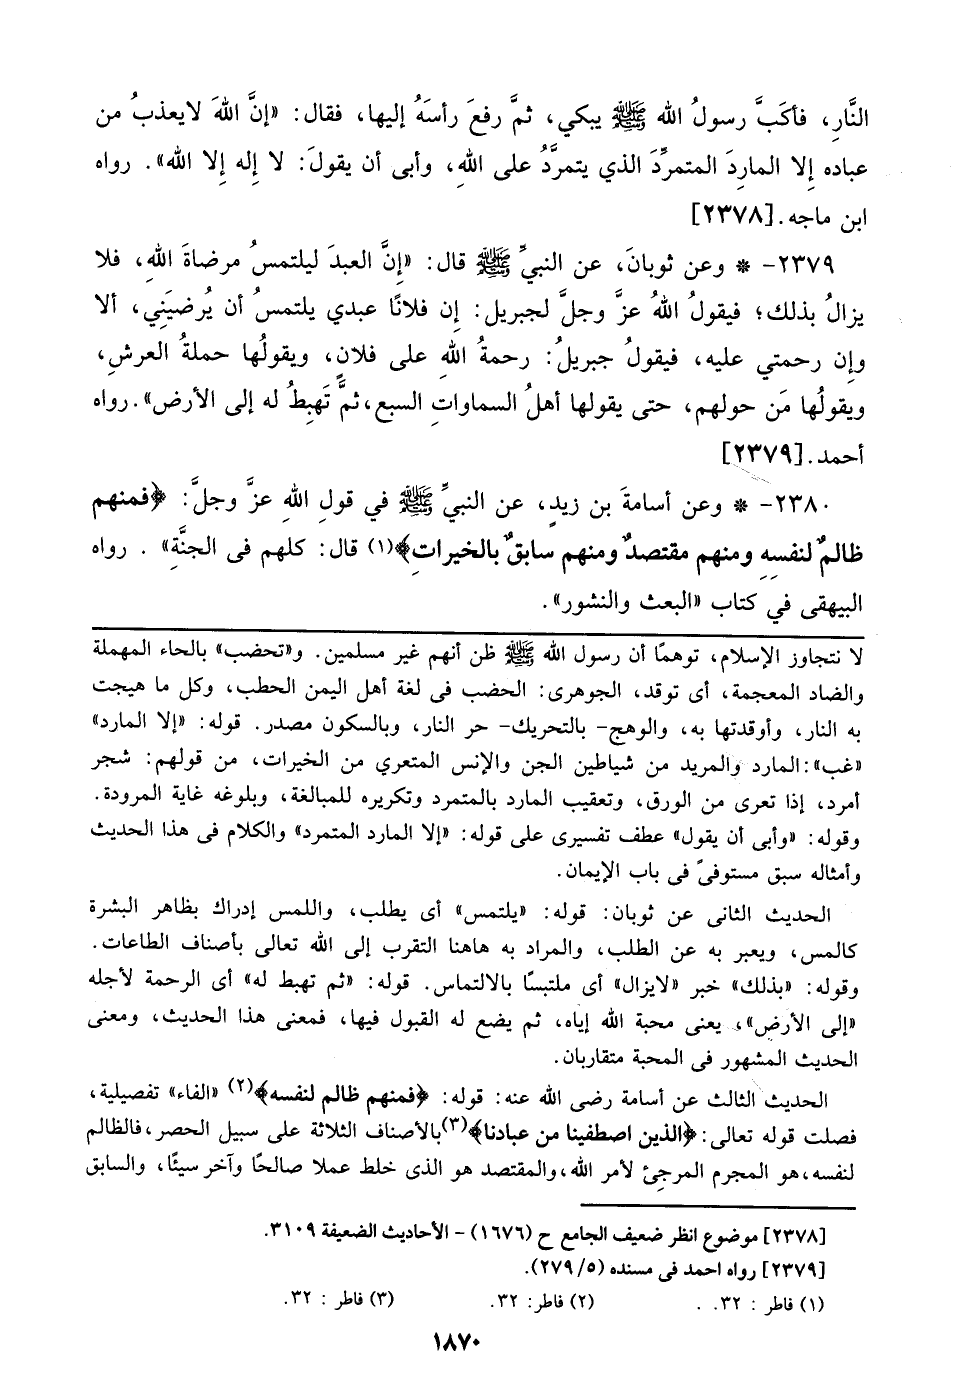 النَّارِ، فأكَبَّ رسولُ الله ﷺ يبكي، ثمَّ رفعَ رأسَهُ إليها، فقال: «إنَّ اللهَ لايعذبُ من
عباده إِلا الماردَ المتمرِّدَ الذي يتمردَّ على اللهِ، وأبى أن يقولَ: لا إله إلا الله». رواه
ابن ماجه. [٢٣٧٨]
٢٣٧٩- * وعن ثوبانَ، عن النبيِّ ﷺ قال: «إنَّ العبدَ ليلتمسُ مرضاةَ اللهِ، فلا
يزالُ بذلك؛ فيقولُ اللهُ عزَّ وجلَّ لجبريل: إن فلانًا عبدي يلتمسُ أن يُرضيَني، ألا
وإن رحمتي عليه، فيقولُ جبريلُ: رحمةُ اللهِ على فلانٍ، ويقولُها حملةُ العرشِ،
ويقولُها مَن حولهم، حتى يقولها أهلُ السماواتِ السبع، ثمَّ تَهبِطُ له إلى الأرض». رواه
أحمد. [٢٣٧٩]
٢٣٨٠- * وعن أسامةَ بن زيدٍ، عن النبيِّ ﷺ في قولِ اللهِ عزَّ وجلَّ: ﴿فمنهم
ظالمٌ لنفسِهِ ومنهم مقتصدٌ ومنهم سابقٌ بالخيراتِ﴾(١) قال: كلهم فى الجنَّةِ» . رواه
البيهقى في كتاب «البعث والنشور».
لا نتجاوز الإسلام، توهمًا أن رسول الله ﷺ ظن أنهم غير مسلمين. و«تحضب» بالحاء المهملة
والضاد المعجمة، أى توقد، الجوهرى: الحضب فى لغة أهل اليمن الحطب، وكل ما هيجت
به النار، وأوقدتها به، والوهج- بالتحريك- حر النار، وبالسكون مصدر. قوله: «إلا المارد»
«غب»: المارد والمريد من شياطين الجن والإنس المتعري من الخيرات، من قولهم: شجر
أمرد، إذا تعرى من الورق، وتعقيب المارد بالمتمرد وتكريره للمبالغة، وبلوغه غاية المرودة.
وقوله: «وأبى أن يقول» عطف تفسيرى على قوله: «إلا المارد المتمرد» والكلام فى هذا الحديث
وأمثاله سبق مستوفىً فى باب الإيمان.
الحديث الثانى عن ثوبان: قوله: «يلتمس» أى يطلب، واللمس إدراك بظاهر البشرة
كالمس، ويعبر به عن الطلب، والمراد به هاهنا التقرب إلى الله تعالى بأصناف الطاعات.
وقوله: «بذلك» خبر «لايزال» أى ملتبسًا بالالتماس. قوله: «ثم تهبط له» أى الرحمة لأجله
«إلى الأرض»، يعنى محبة الله إياه، ثم يضع له القبول فيها، فمعنى هذا الحديث، ومعنى
الحديث المشهور فى المحبة متقاربان.
الحديث الثالث عن أسامة رضى الله عنه: قوله: ﴿فمنهم ظالم لنفسه﴾(٢) «الفاء» تفصيلية،
فصلت قوله تعالى: ﴿الذين اصطفينا من عبادنا﴾(٣) بالأصناف الثلاثة على سبيل الحصر، فالظالم
لنفسه، هو المجرم المرجئ لأمر الله، والمقتصد هو الذى خلط عملا صالحًا وآخر سيئًا، والسابق
[٢٣٧٨] موضوع انظر ضعيف الجامع ح (١٦٧٦) - الأحاديث الضعيفة ٣١٠٩.
[٢٣٧٩] رواه احمد فى مسنده (٥/ ٢٧٩).
(١) فاطر : ٣٢. (٢) فاطر: ٣٢. (٣) فاطر : ٣٢.
١٨٧٠